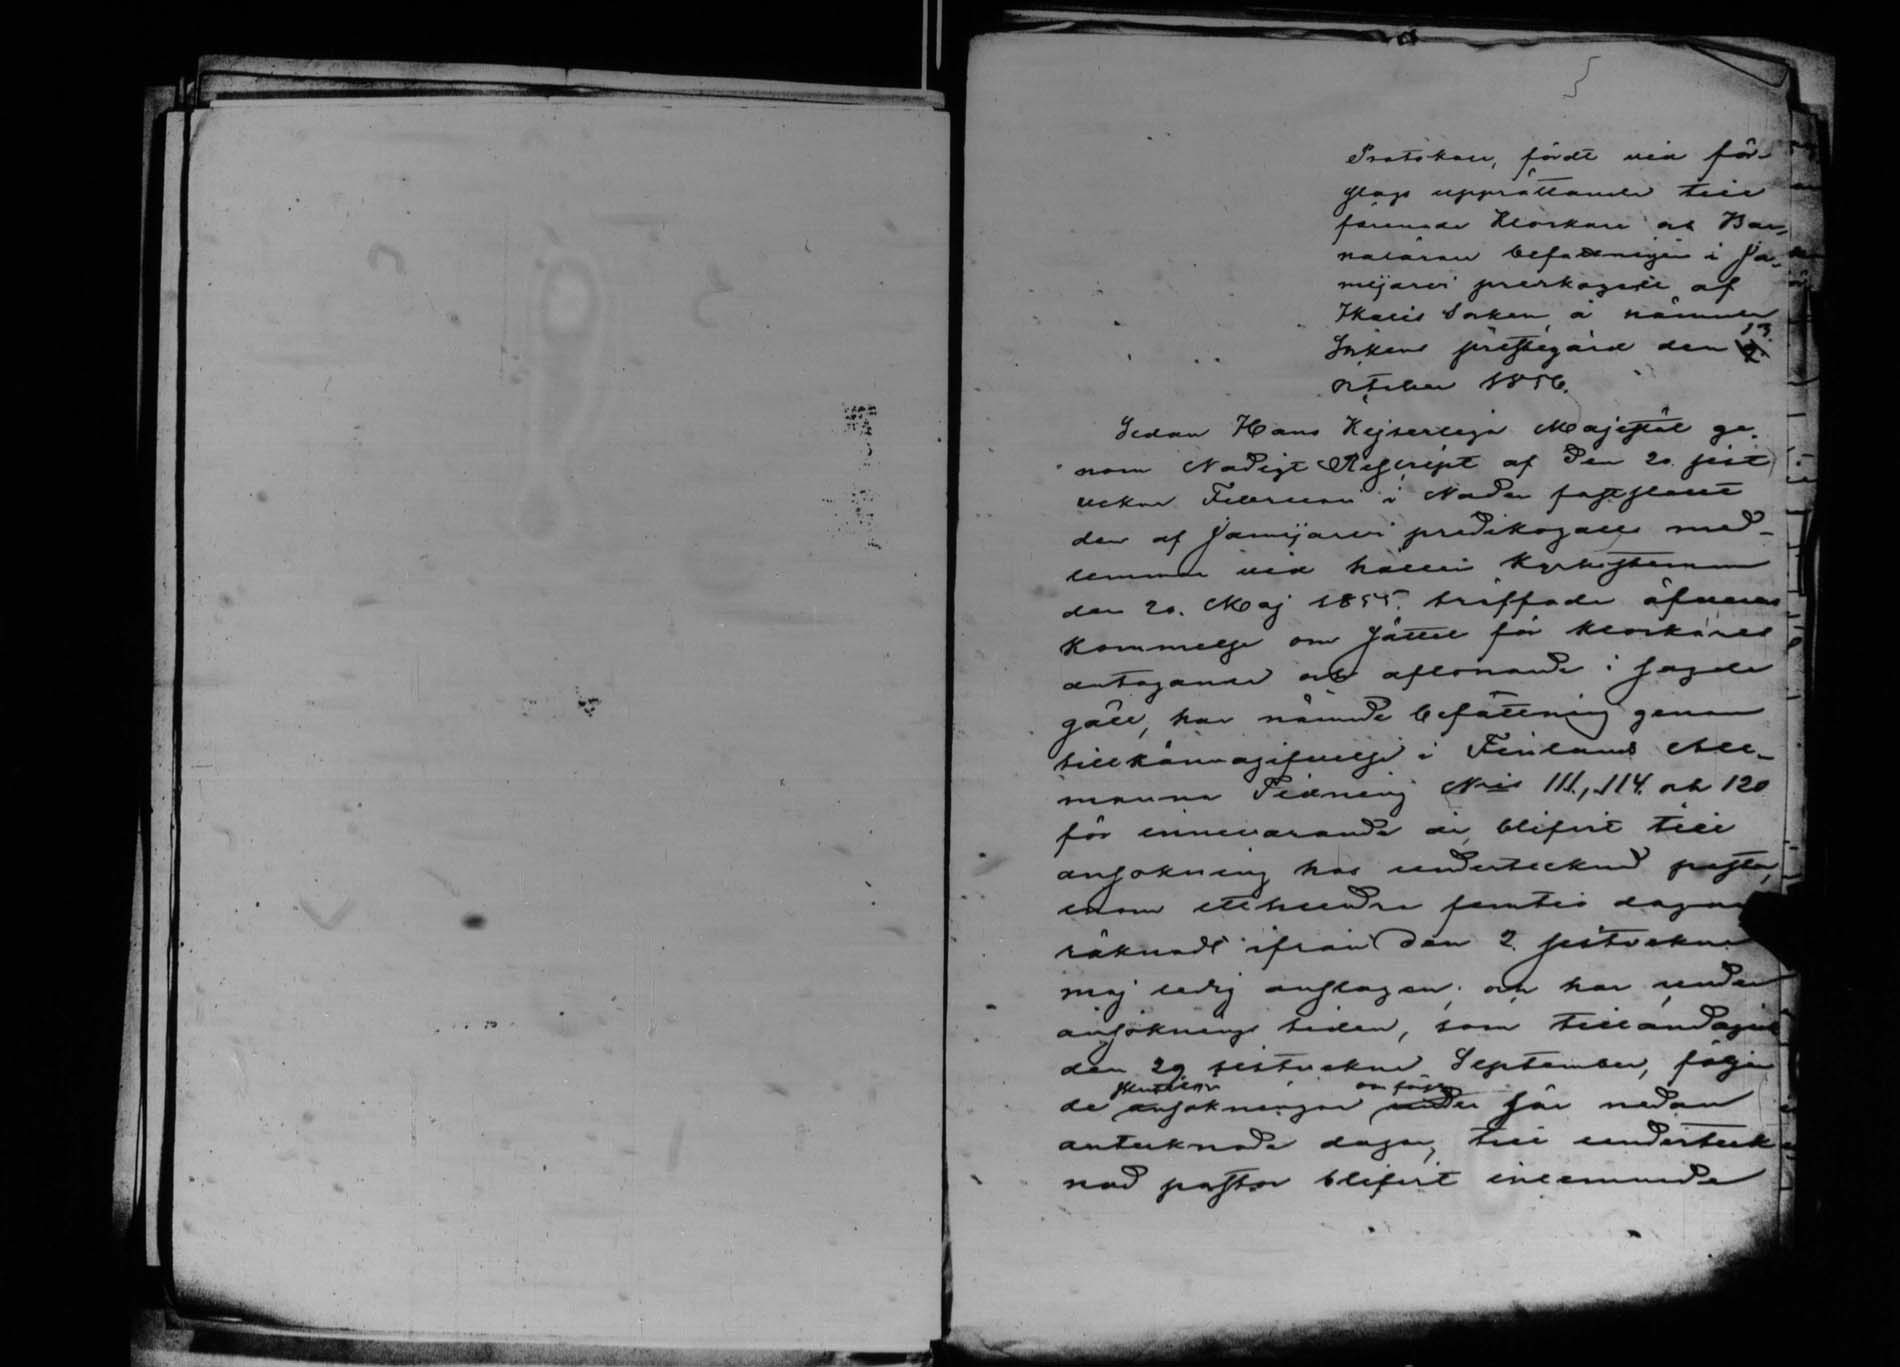 Protokoll, fördt vid för-
slags upprättande till
förenade Klockare och Bar-
nalärare befattningen i Jä-
mijärvi predikogäll af
Ikalis Socken, å nämnde
Sockens prestegård den 13
October 1856.
Sedan Hans Kejserliga Majestät ge-
nom Nådigt Rescript af den 20 sist-
vekne Februari i Nåder fastställt
den af Jämijärvi predikogälls med-
lemmar vid hållen Kyrkostämma
den 20. Maj 1855. träffade öfverens
kommelse om sättet för klockares
antagande och aflönande i sagde
gäll, har nämnde befattning genom
tillkännagifvelse i Finlands All-
männa Tidning N:ris 111, 114. och 120
för innevarande år blifvit till
ansökning hos undertecknad pastor,
inom etthundra femtio dagar
räknadt ifrån den 2 sistvekne
maj ledig anslagen; och har under
ansöknings tiden, som tilländagått
den 29 sistvekne September, följan
de skriftliga ansökningar å här nedan
antecknade dagar, till underteck
nad pastor blifvit inlemnade